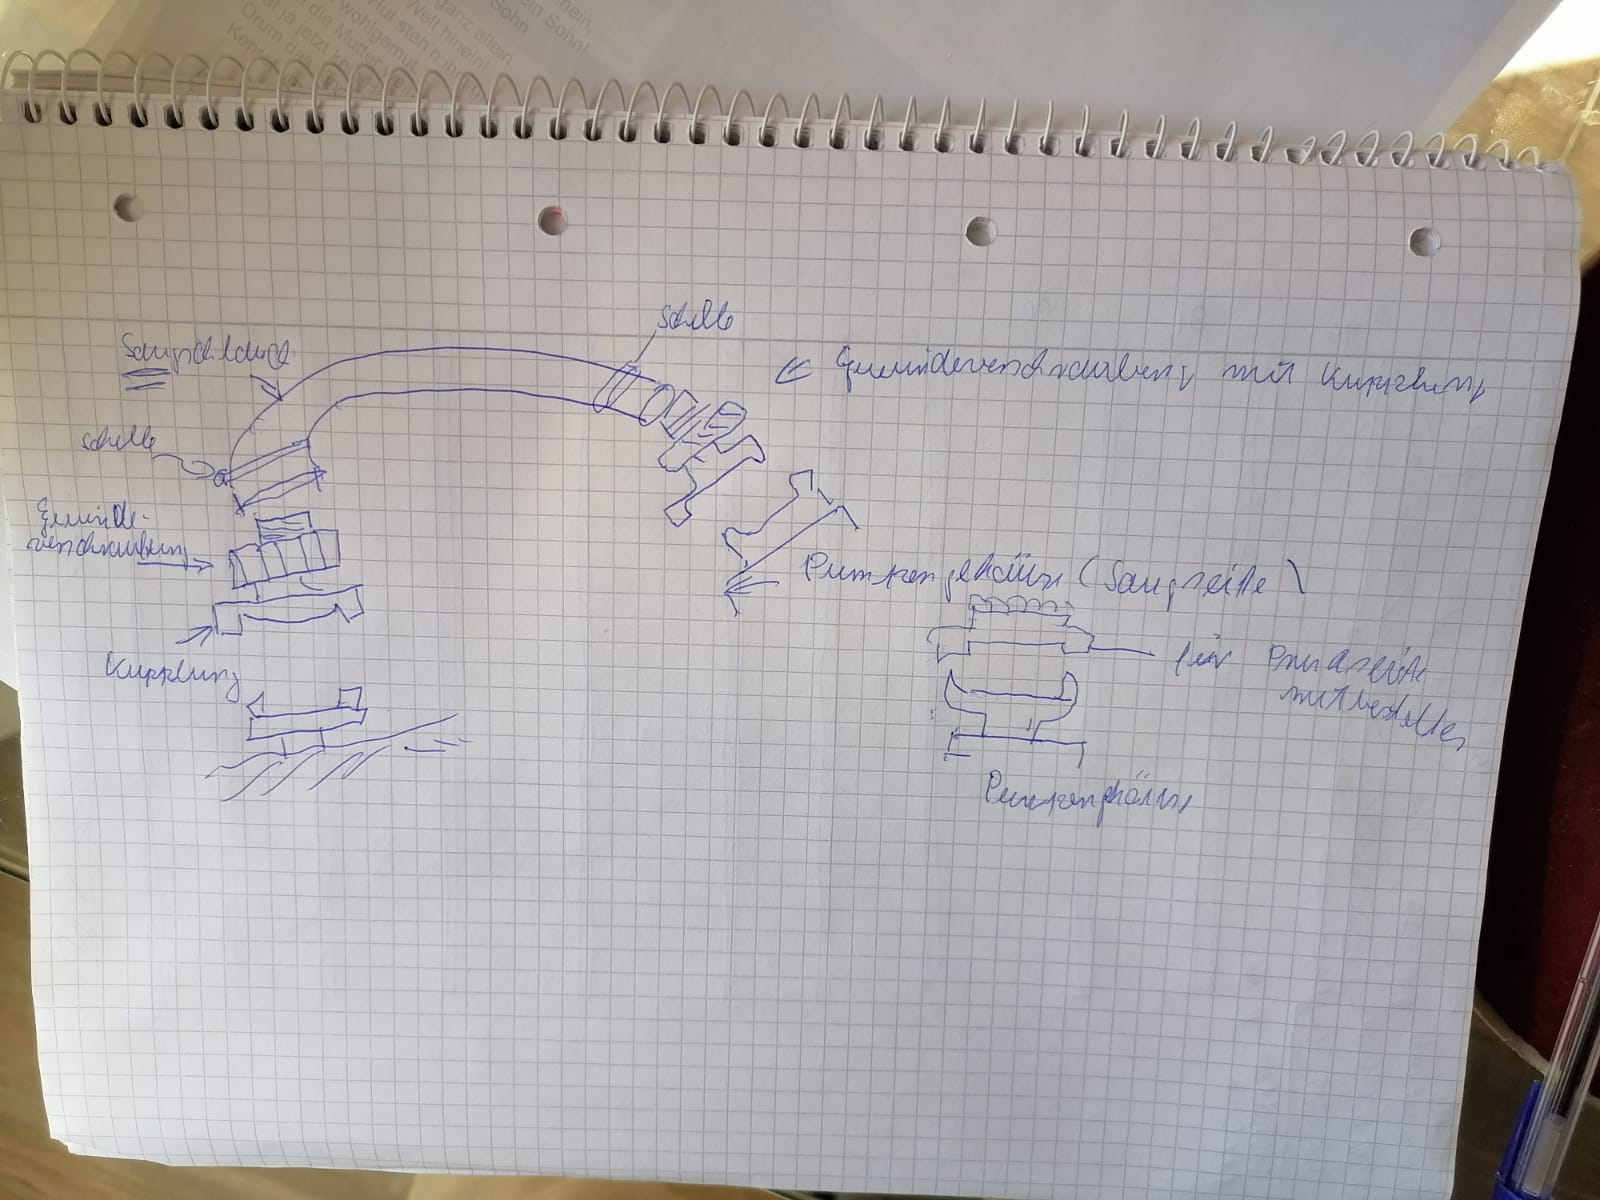 hein,
ein Sohn!
Sohn
ganz allein
Welt hinein!
Hut steh'n ih
wohlgemut.
die Mutter
at ja jetzt ke
Drum das
Kehr
Schelle
Saugschlauch
Gewindeverschraubung mit Kupplung
Schelle
Gewinde-
verschraubung
Pumpengehäuse (Saugseite)
für Druckseite
mitbestellen
Kupplung
Pumpengehäuse